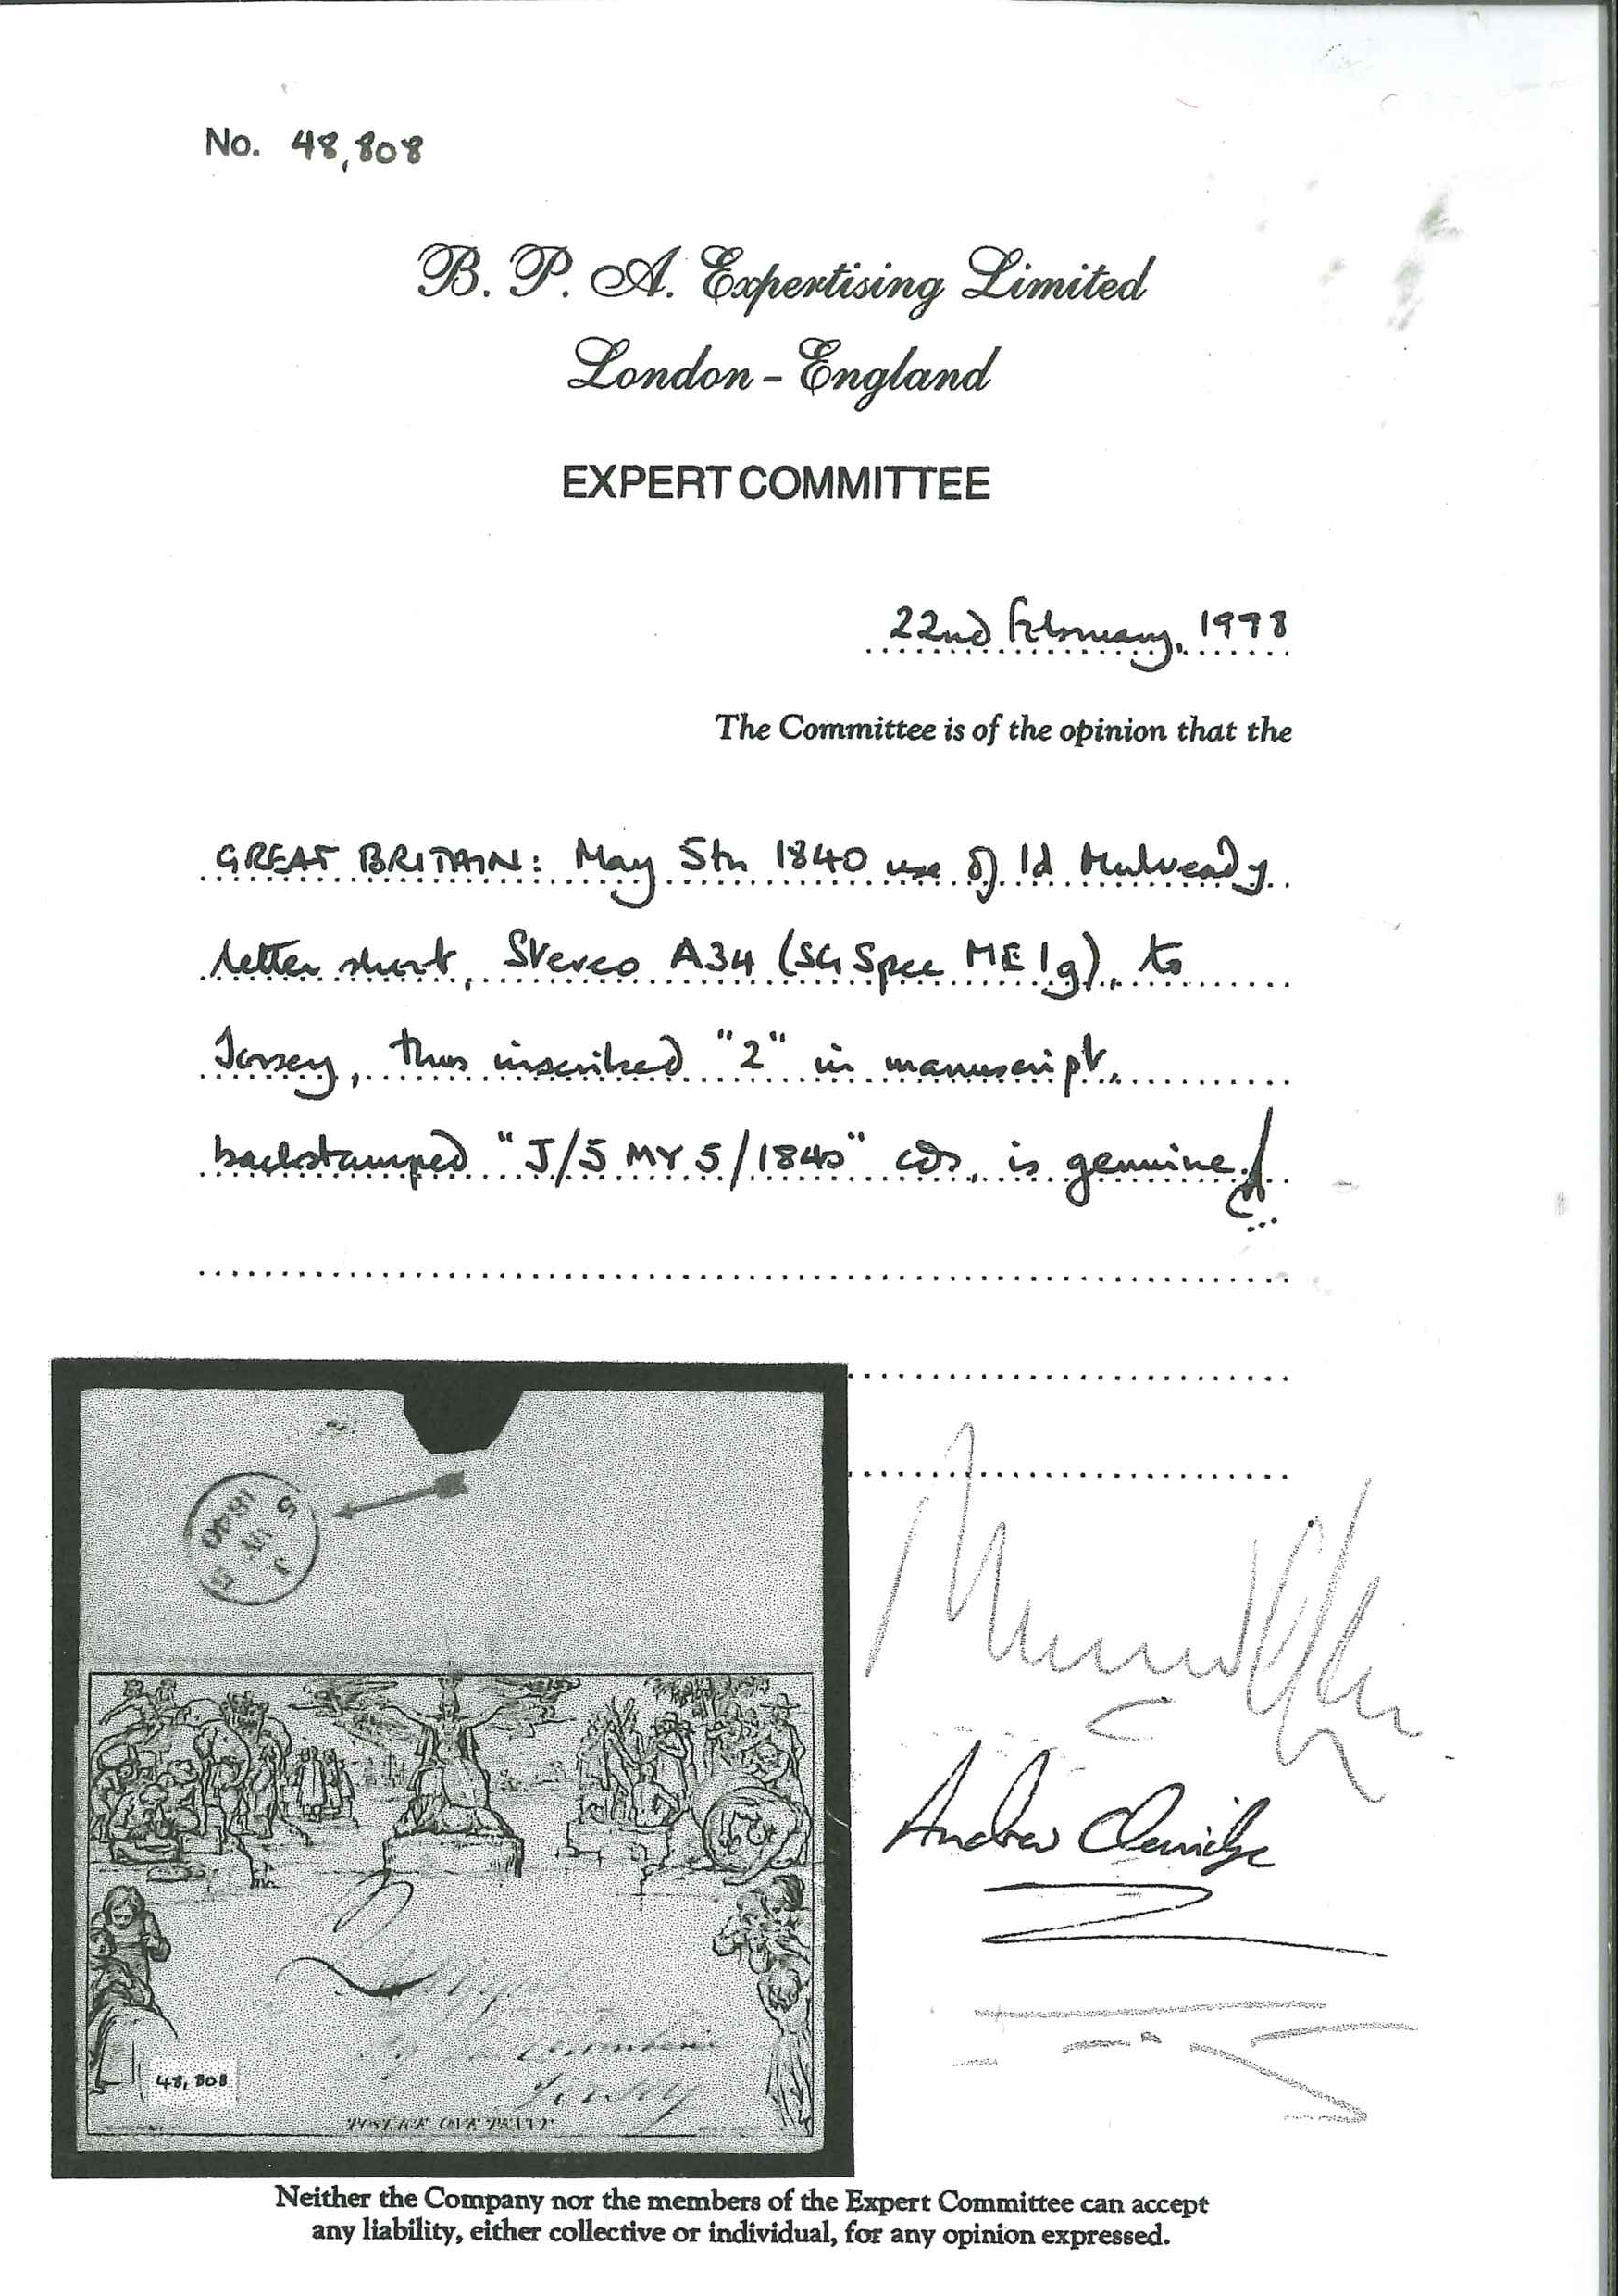 No. 48,808
B. P. A. Expertising Limited
London - England
EXPERT COMMITTEE
22nd February, 1998
The Committee is of the opinion that the
GREAT BRITAIN: May 5th 1840 use of 1d Mulready
letter sheet, Stereo A34 (SG Spec ME1g), to
Jersey, thus inscribed "2" in manuscript,
backstamped "J/5 MY 5/1840" cds, is genuine.
J
5 MY 5
1840
2
Jersey
48, 808
POSTAGE ONE PENNY.
Andrew Claridge
Neither the Company nor the members of the Expert Committee can accept
any liability, either collective or individual, for any opinion expressed.